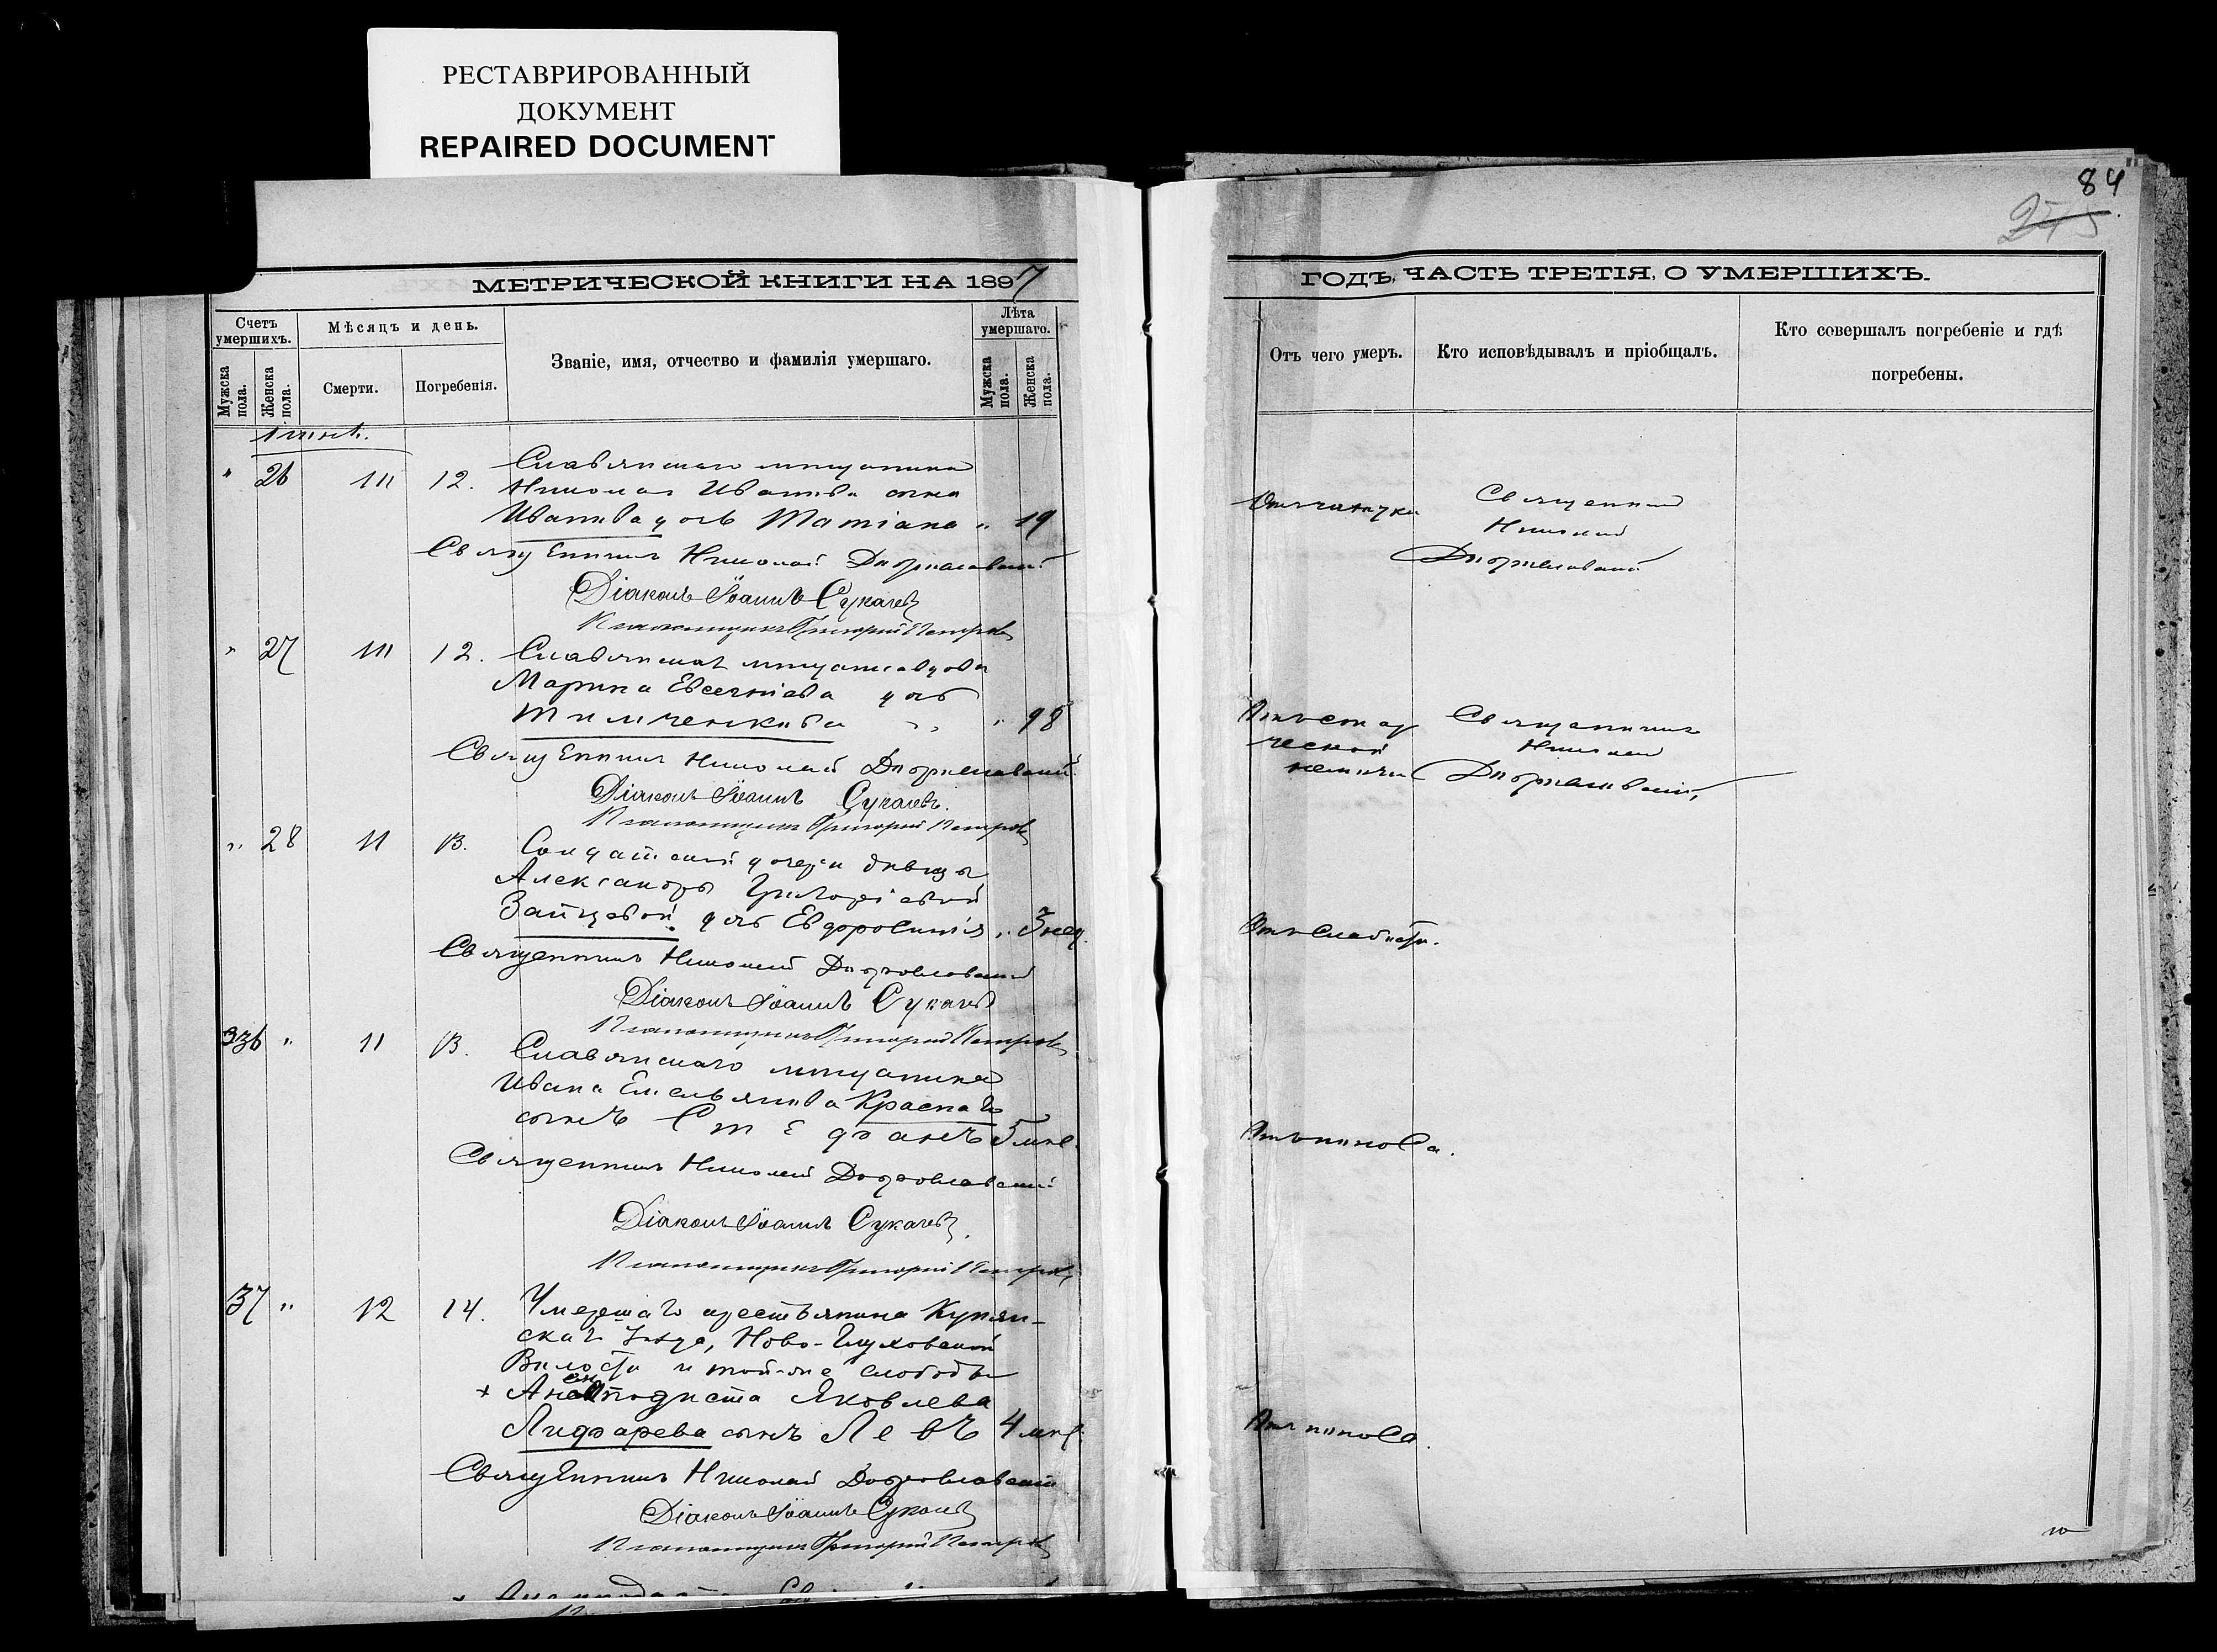 РЕСТАВРИРОВАННЫЙ
ДОКУМЕНТ
REPAIRED DOCUMENT
84
245
МЕТРИЧЕСКОЙ КНИГИ НА 1897
ГОДЪ, ЧАСТЬ ТРЕТІЯ, О УМЕРШИХЪ.
Счетъ умершихъ.
Мужска пола.
Женска пола.
Мѣсяцъ и день.
Смерти.
Погребенія.
Званіе, имя, отчество и фамилія умершаго.
Лѣта умершаго.
Мужска пола.
Женска пола.
Отъ чего умеръ.
Кто исповѣдывалъ и пріобщалъ.
Кто совершалъ погребеніе и гдѣ
погребены.
" 26 12. Славянскаго мѣщанина
Николая Иванова сына
Иванова дочь Татіана " 19
Священникъ Николай
Діаконъ Іоаннъ Сукачевъ
Псаломщикъ Григорій Петровъ
Священникъ
Николай
" 27 12. Славянская мѣщанская вдова
Марина Евсегніева дочь
" 98
Священникъ Николай
Діаконъ Іоаннъ Сукачевъ.
Псаломщикъ Григорій Петровъ
Отъ стар
ческой
немощи
Священникъ
Николай
" 28 11 13. Солдатской дочери дѣвицы
Александры Григоріевой
Зайцевой дочь Евдоровинія " 3 нед.
Священникъ Николай
Діаконъ Іоаннъ Сукачевъ
Псаломщикъ Григорій Петровъ
Отъ слабости.
36 " 11 13. Славянскаго мѣщанина
Ивана Емельянова Краснаго
сынъ Стефанъ 5 мѣс.
Священникъ Николай
Діаконъ Іоаннъ Сукачевъ.
Псаломщикъ Григорій Петровъ
Отъ поноса.
37 " 12 14. Умершаго крестьянина Купян-
скаго уѣзда, Ново-Глуховской
Волости и той-же слободы
Яковлева
Лифарева сынъ Левъ 4 мѣс.
Священникъ Николай
Діаконъ Іоаннъ Сукачевъ
Псаломщикъ Григорій Петровъ
Отъ поноса.